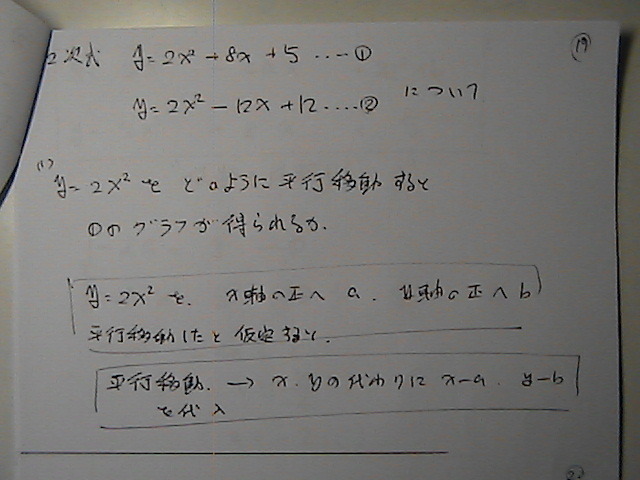 ⑲
2次式 y=2x²+8x+5 ....①
y=2x²-12x+12 ....② について
(1)
y=2x²を どのように平行移動すると
①のグラフが得られるか.
y=2x²を. x軸の正へ a. y軸の正へ b
平行移動したと仮定すると.
平行移動. → x.yの代わりに x-a. y-b
を代入